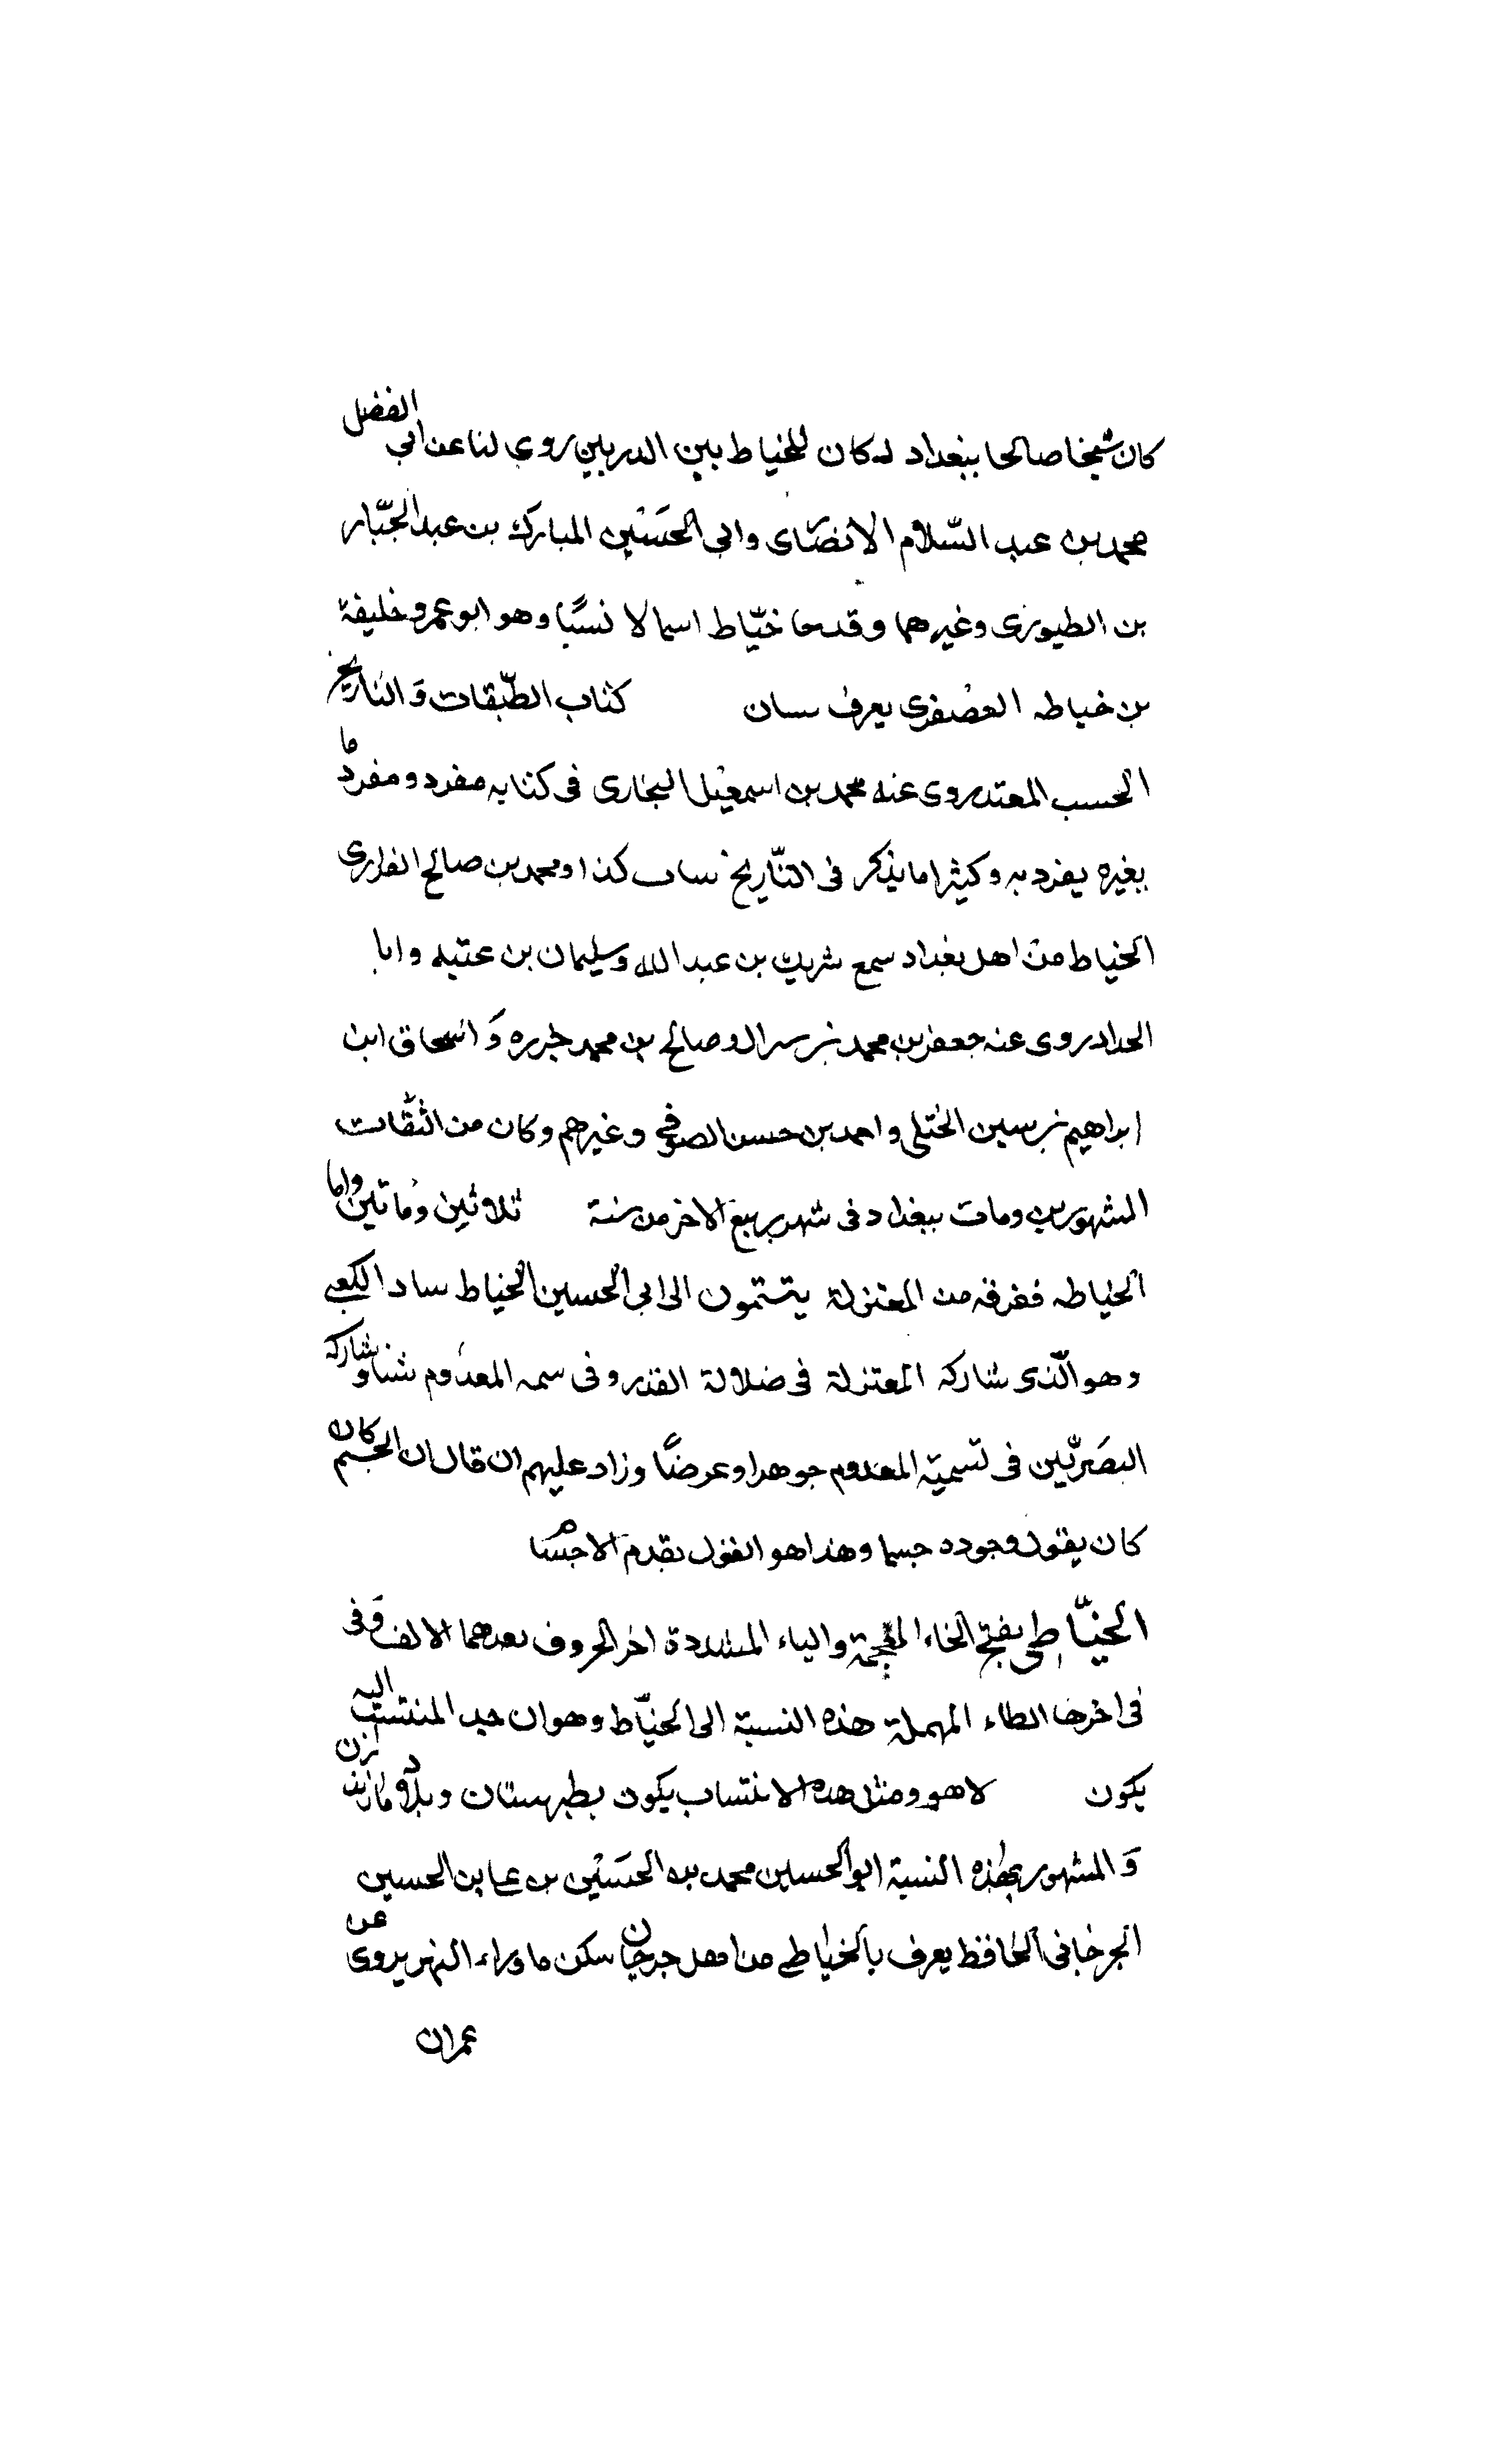 كان شيخا صالحا ببغداد له كان للخياط بين الدربين روى لنا عن ابى الفضل
محمد بن عبد السّلام الانصاى وابى الحسين المبارك بن عبد الجبّار
بن الطيورى وغيرهما وقدحا خيّاط اسما لا نسبًا وهو ابو عمرو خليفة
بن خياطه العصفرى يعرف كتاب الطّبقات وَ التاريخ
الحسب المعتد روى عنه محمد بن اسمعيل البخارى فى كتابه مفرد و مفردا ما
بغيره يفرد به وكيثرا ما يذكر فى التّاريخ كذا ومحمد بن صالح الفزارى
الخياط من اهل بغداد سمع شريك بن عبد الله وسليمان بن عتبه وابا
الحداد روى عنه جعفر بن محمد وصالح بن محمد جزره وَ اسحاق ابن
ابراهيم بن سين الختلى واحمد بن حسن الصوفى وغيرهم وكان من الثقات
المشهورين ومات ببغداد فى شهر ربيع الاخر من سنة ثلاثين ومائتين واما
الخياطه ففرقه من المعتزلة ينتمون الى ابى الحسين الخياط ساد الكعبى
وهو الّذى شاركه المعتزلة فى ضلالة القدر وفى سمه المعدوم شيئا وشاركه
البصَريّين فى تسمية المعدوم جوهرا وعرضًا وزاد عليهم ان قال ان الجسم كان
كان يقول وجوده جسما وهذا هو القول بقدم الاجسام
الخيّاطى بفتح الخاء المعجمة والياء المشددة اخر الحروف بعدهما الالف وَفى
فى اخرها الطاء المهملة هذه النسبة الى الخيّاط وهو ان جد المنتسب اليه
يكون لا هو ومثل هذه الانتساب يكون بطبرستان وبلاد مازندران
وَ المشهور بهذه النسبة ابو الحسين محمد بن الحسين بن على بن الحسين
الجرجانى الحافظ يعرف بالخياطى من اهل جرجان سكن ما وراء النهر يروى عن
عمران